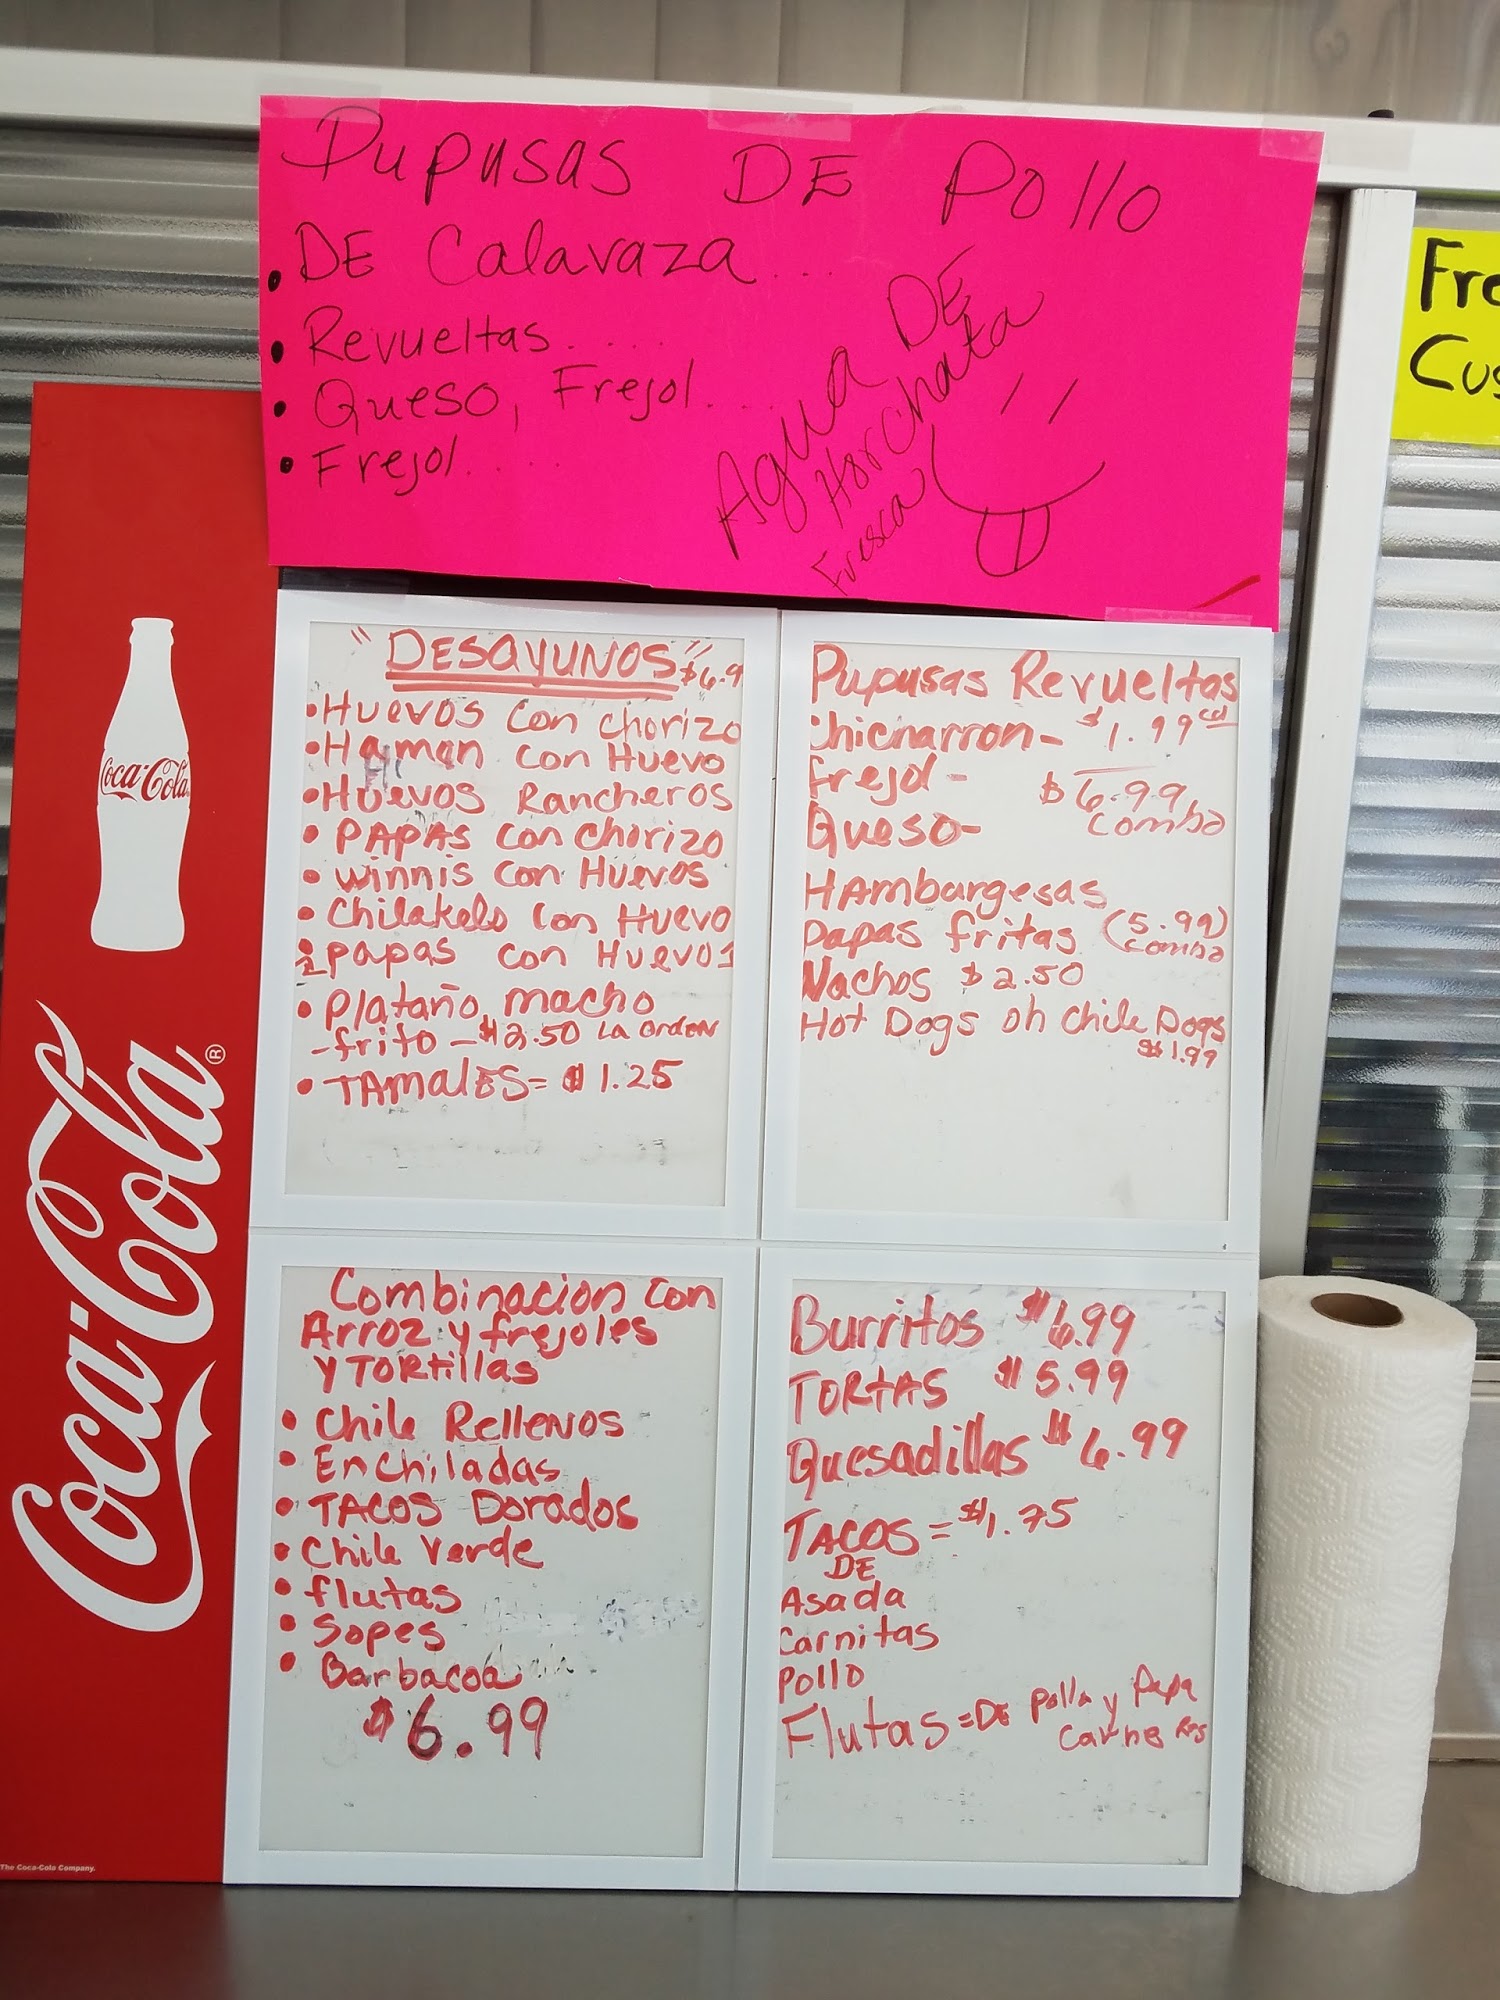 Pupusas DE Pollo
• DE Calavaza...
• Revueltas....
• Queso, Frejol....
• Frejol....
Agua DE
Horchata
Fresca
Fre
Cus
"DESAYUNOS" $6.9
• Huevos con chorizo
• Hamon con Huevo
• Huevos Rancheros
• PAPAS con chorizo
• winnis con Huevos
• Chilakelo con Huevo
papas con Huevos
• Plataño macho
-frito - $2.50 La orden
• TAmalES= $1.25
Pupusas Revueltas
Chicharron- $1.99 cd
frejol - $6.99
Queso- combo
HAmburgesas
papas fritas (5.99)
combo
Nachos $2.50
Hot Dogs oh chile Dogs
$1.99
Combinacion con
Arroz y frejoles
y TORtillas
• Chile Rellenos
• Enchiladas
• TACOS Dorados
• Chile Verde
• flutas
• Sopes
• Barbacoa
$6.99
Burritos $6.99
TORTAS $5.99
Quesadillas $6.99
TACOS = $1.75
DE
Asada
Carnitas
Pollo
Flutas = DE pollo y Papa
carne Res
Coca-Cola
Coca-Cola®
The Coca-Cola Company.